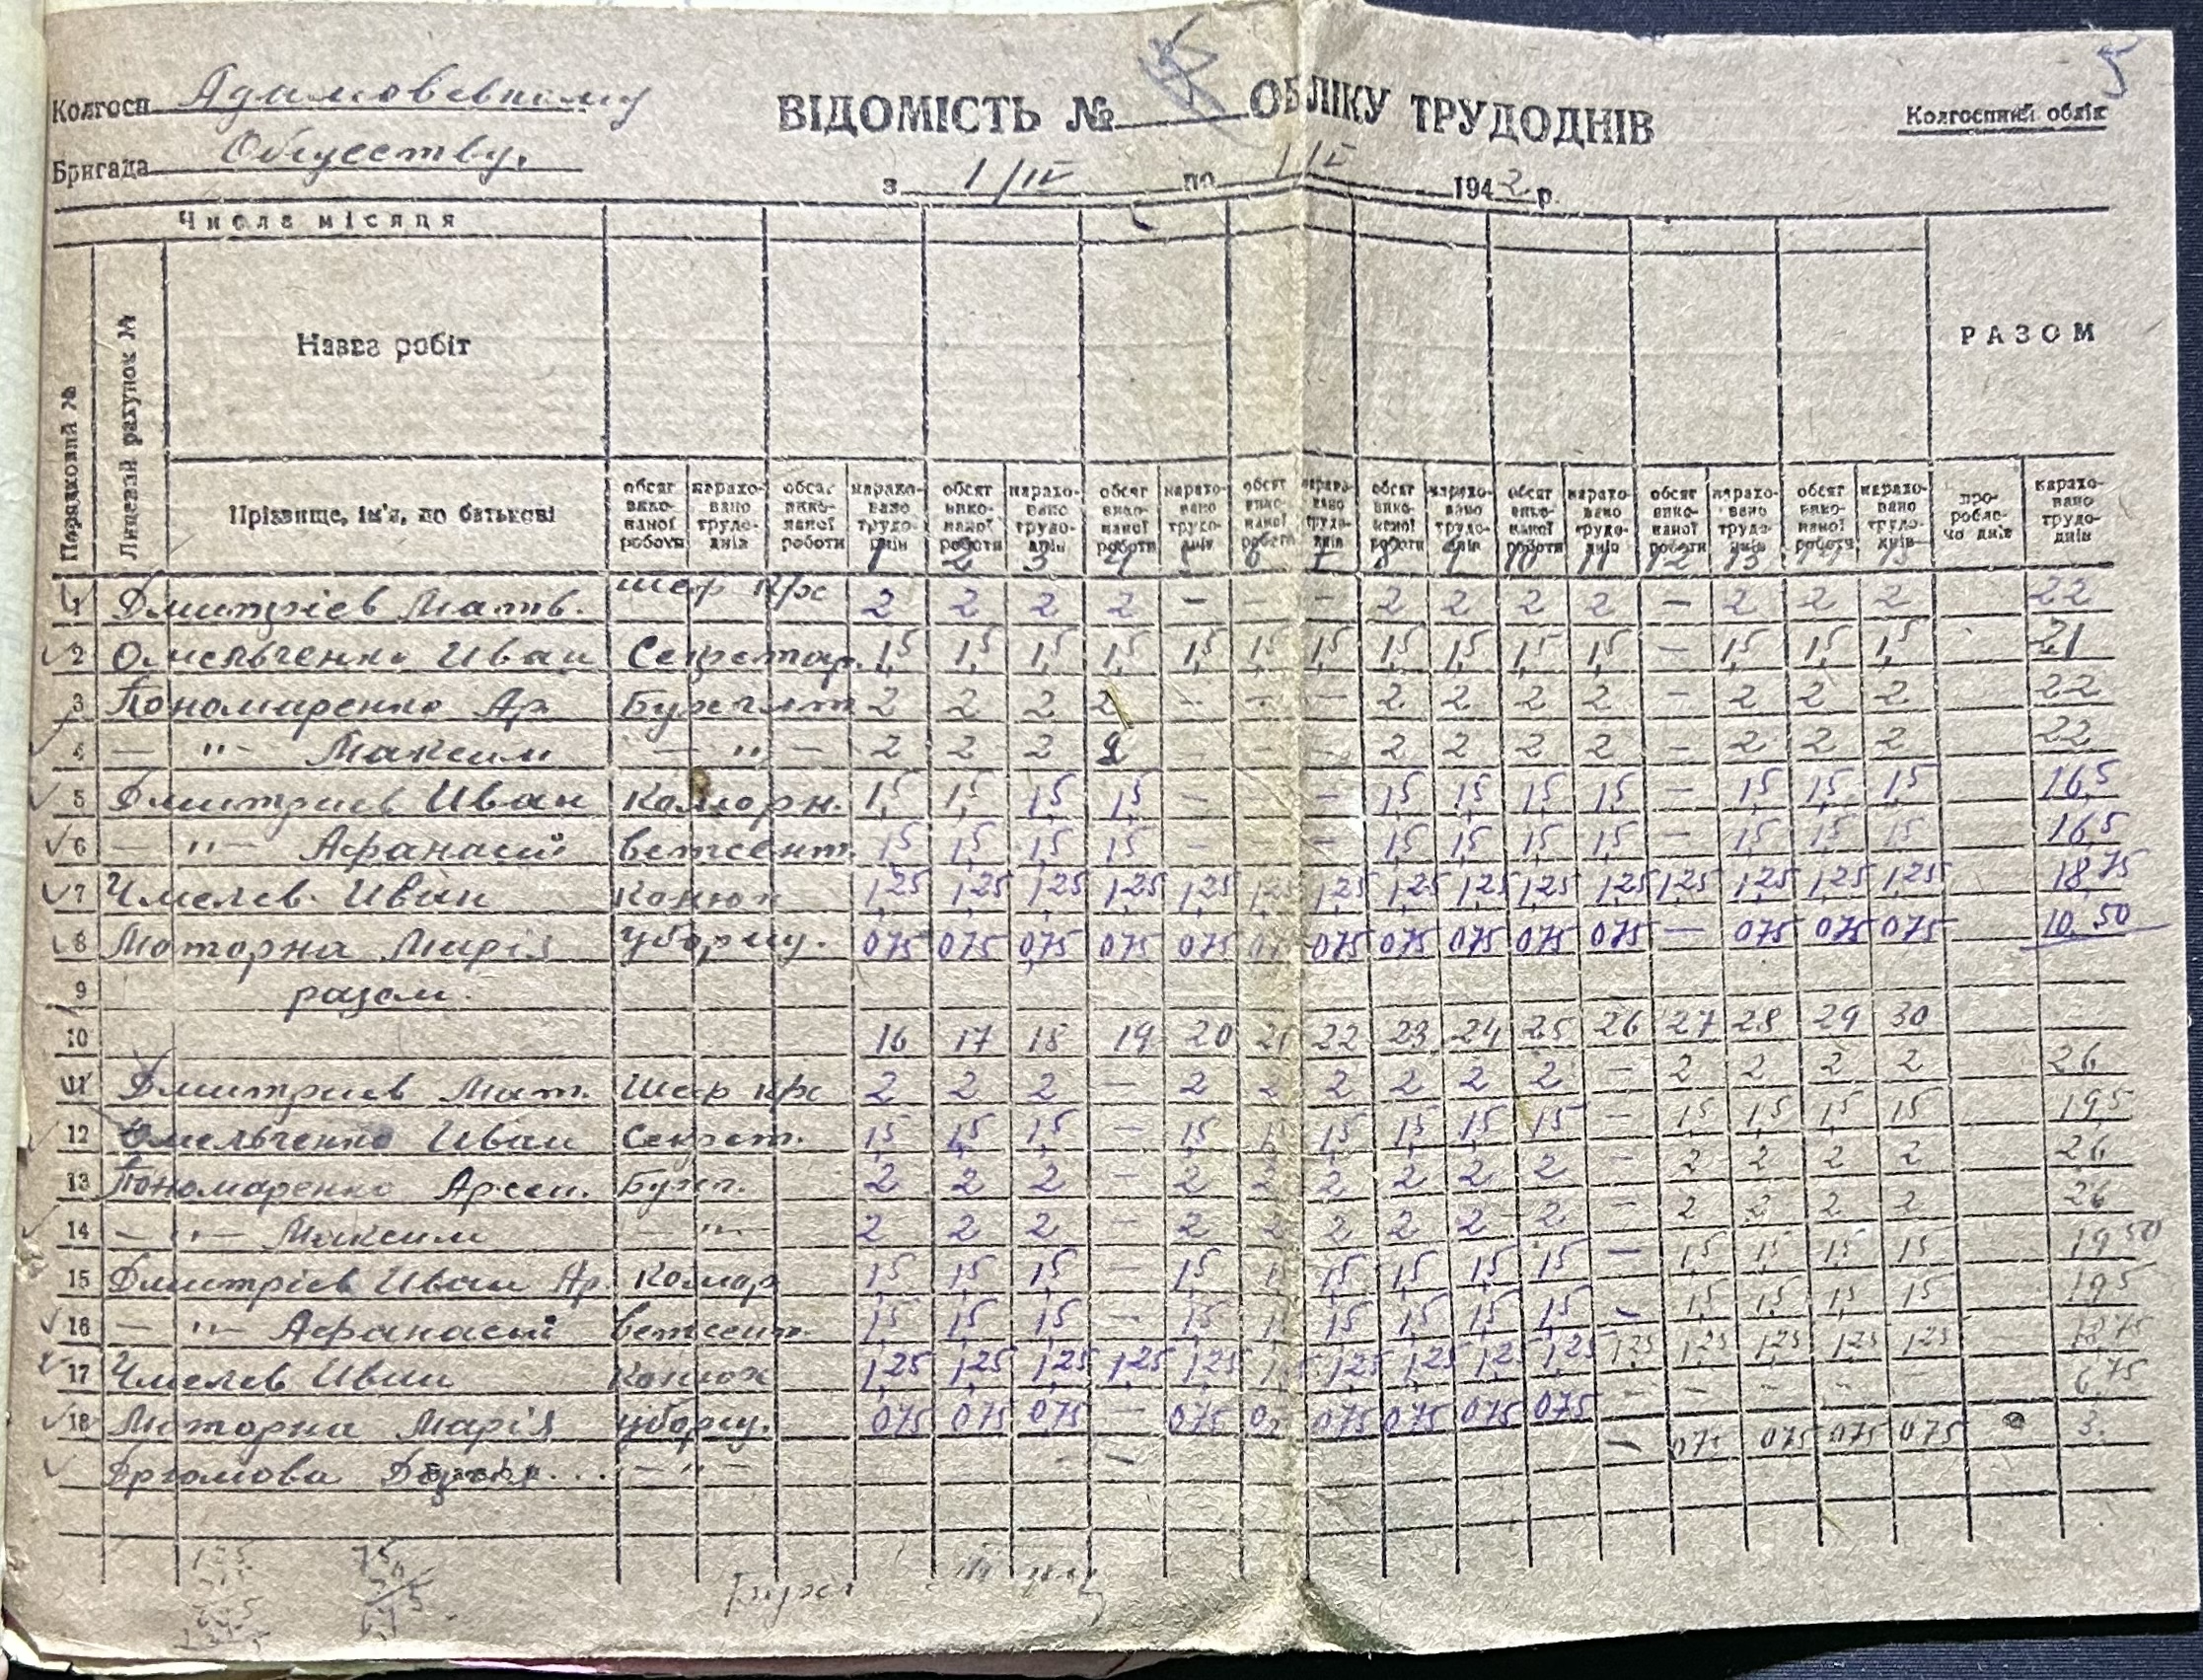 5
Колгосп Адамовському ВІДОМІСТЬ № ОБЛІКУ ТРУДОДНІВ Колгоспний облік
Бригада Обществу.
з 1/IV по 1/V 1942 р.
Числа місяця
Порядковий №
Лицевий рахунок №
Назва робіт
РАЗОМ
Прізвище, ім'я, по батькові
обсяг виконаної роботи нараховано трудоднів обсяг виконаної роботи нараховано трудоднів обсяг виконаної роботи нараховано трудоднів обсяг виконаної роботи нараховано трудоднів обсяг виконаної роботи нараховано трудоднів обсяг виконаної роботи нараховано трудоднів обсяг виконаної роботи нараховано трудоднів обсяг виконаної роботи нараховано трудоднів обсяг виконаної роботи нараховано трудоднів про-робле-но днів нараховано трудоднів
1 2 3 4 5 6 7 8 9 10 11 12 13 14 15
1 Дмитрієв Матв. 2 2 2 2 – – – 2 2 2 2 – 2 2 2 22
2 Омельченко Иван Секретар. 1,5 1,5 1,5 1,5 1,5 1,5 1,5 1,5 1,5 1,5 1,5 – 1,5 1,5 1,5 21
3 Пономаренко Ар Бухгалт 2 2 2 2 – – – 2 2 2 2 – 2 2 2 22
4 – " – Максим – " – 2 2 2 2 – – – 2 2 2 2 – 2 2 2 22
5 Дмитриев Иван Коморн. 1,5 1,5 1,5 1,5 – – 1,5 1,5 1,5 1,5 – 1,5 1,5 1,5 16,5
6 – " – Афанасий ветсант. 1,5 1,5 1,5 1,5 – – – 1,5 1,5 1,5 1,5 – 1,5 1,5 1,5 16,5
7 Чмелев Иван Конюх 1,25 1,25 1,25 1,25 1,25 1,25 1,25 1,25 1,25 1,25 1,25 1,25 1,25 1,25 1,25 18,75
8 Моторна Марія уборщ. 075 075 0,75 075 075 075 075 075 075 075 – 075 075 075 10.50
9 разом.
10 16 17 18 19 20 21 22 23 24 25 26 27 28 29 30
11 Дмитриев Мат. 2 2 2 – 2 2 2 2 2 2 – 2 2 2 2 26
12 Омельченко Иван Секрет. 1,5 1,5 1,5 – 1,5 1,5 1,5 1,5 1,5 – 1,5 1,5 1,5 1,5 19,5
13 Пономаренко Арсен. Бухг. 2 2 2 – 2 2 2 2 2 2 – 2 2 2 2 26
14 – " – Максим – " – 2 2 2 – 2 2 2 2 2 2 – 2 2 2 2 26
15 Дмитрієв Иван Ар. Комор 1,5 1,5 1,5 – 1,5 1,5 1,5 1,5 1,5 – 1,5 1,5 1,5 1,5 19 50
16 – " – Афанасий ветсант. 1,5 1,5 1,5 – 1,5 1,5 1,5 1,5 1,5 – 1,5 1,5 1,5 1,5 19,5
17 Чмелев Иван Конюх 1,25 1,25 1,25 1,25 1,25 1,25 1,25 1,25 1,25 1,25 1,25 1,25 1,25 18,75
18 Моторна Марія уборщ. 075 075 075 – 075 075 075 075 075 – – – – – 6,75
– " – – 075 075 075 075 3.